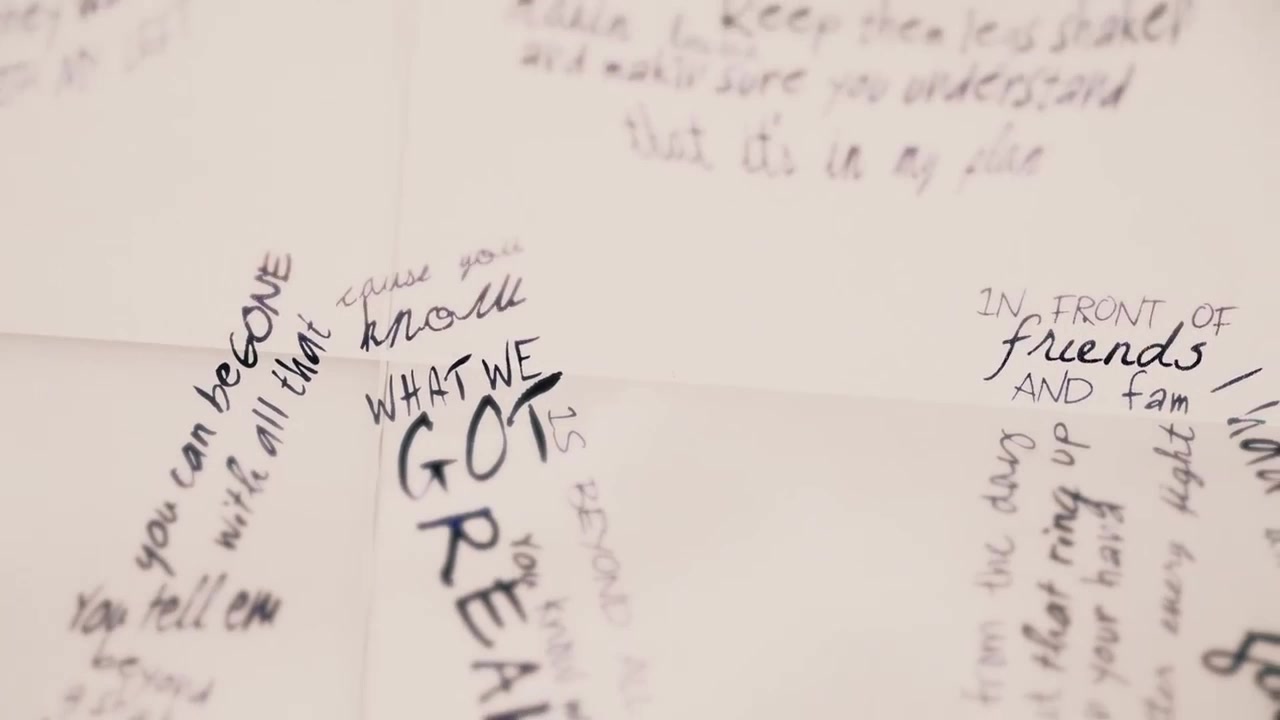 Keep them legs shakel
and makin sure you understand
that it's in my plan
you can be GONE
with all that
You tell em
beyond
cause you
know
WHAT WE
GOT
IS BEYOND ALL
GREA
YOU KNOW
IN FRONT OF
friends
AND fam
from the day
that ring up
your hand
every fight